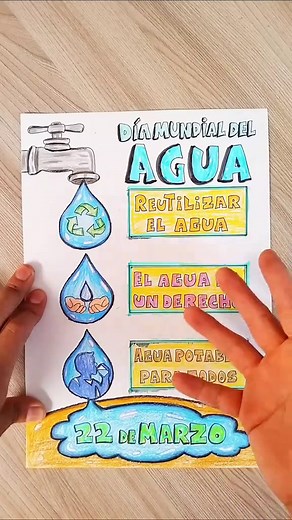 DÍA MUNDIAL DEL
AGUA
REUTILIZAR
EL AGUA
EL AGUA
UN DERECHO
AGUA POTABLE
PARA TODOS
22 DE MARZO